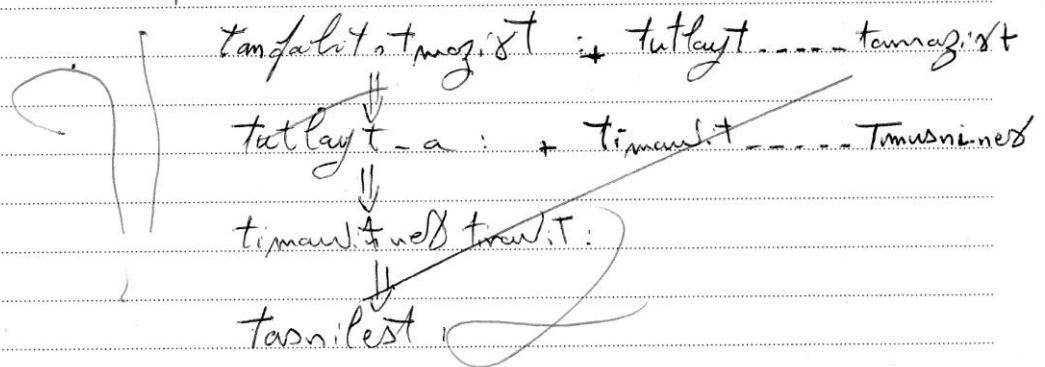 tandalit n tmaziɣt : + tutlayt ..... tamaziɣt
tutlayt-a : + timawit ..... Tmusni-neɣ
timawit neɣ tirawit :
tasnilest :